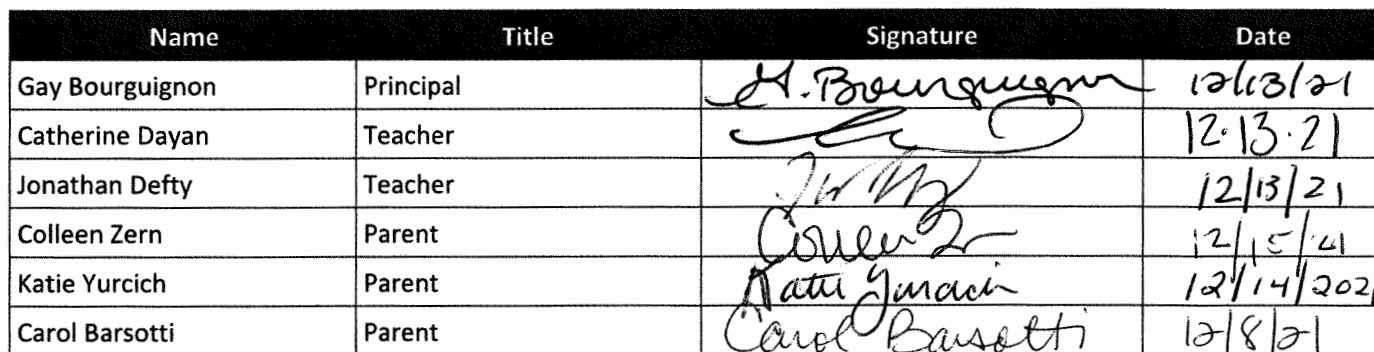 Name Title Signature Date
Gay Bourguignon Principal G. Bourguignon 12/13/21
Catherine Dayan Teacher 12.13.21
Jonathan Defty Teacher 12/13/21
Colleen Zern Parent Colleen 12/15/21
Katie Yurcich Parent Katie Yurcich 12/14/202
Carol Barsotti Parent Carol Barsotti 12/8/21